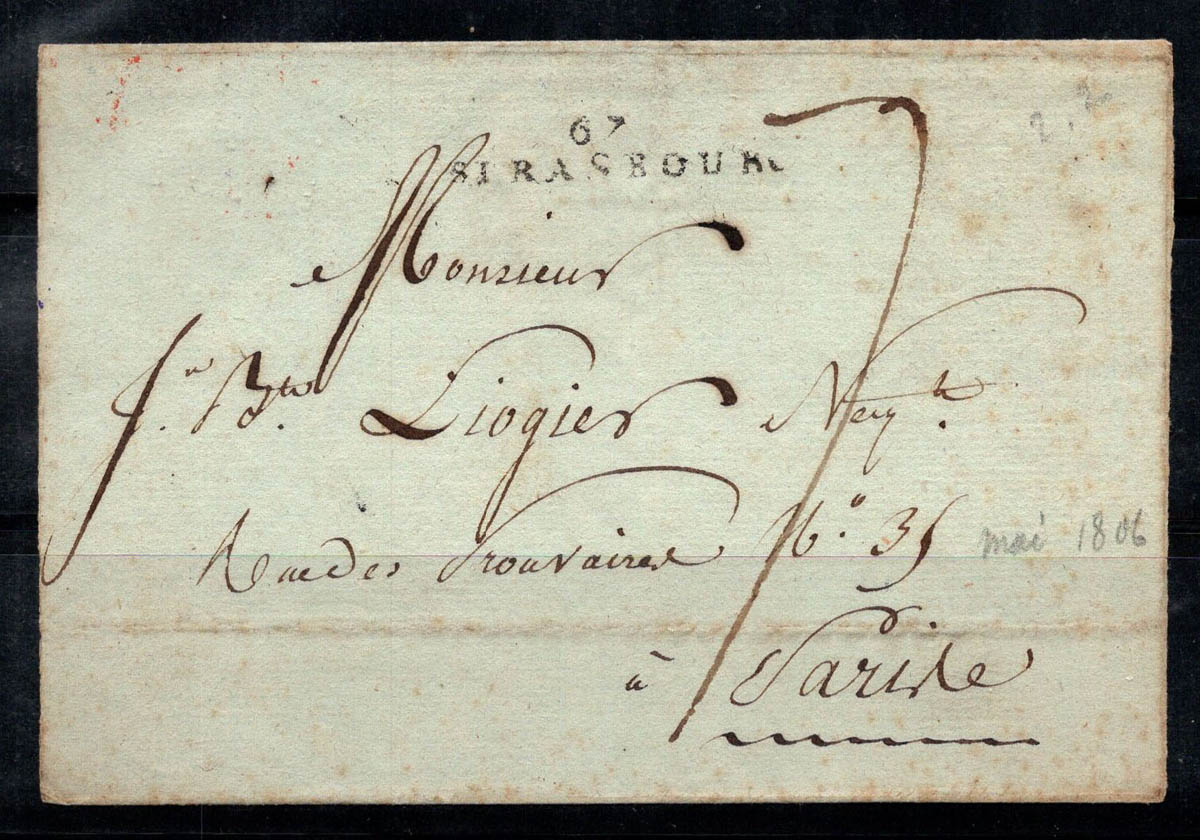 67
STRASBOURG
7
Monsieur
Jn. Bte. Liogier Negt.
Rue des Prouvaires No. 35
mai 1806
à Paris